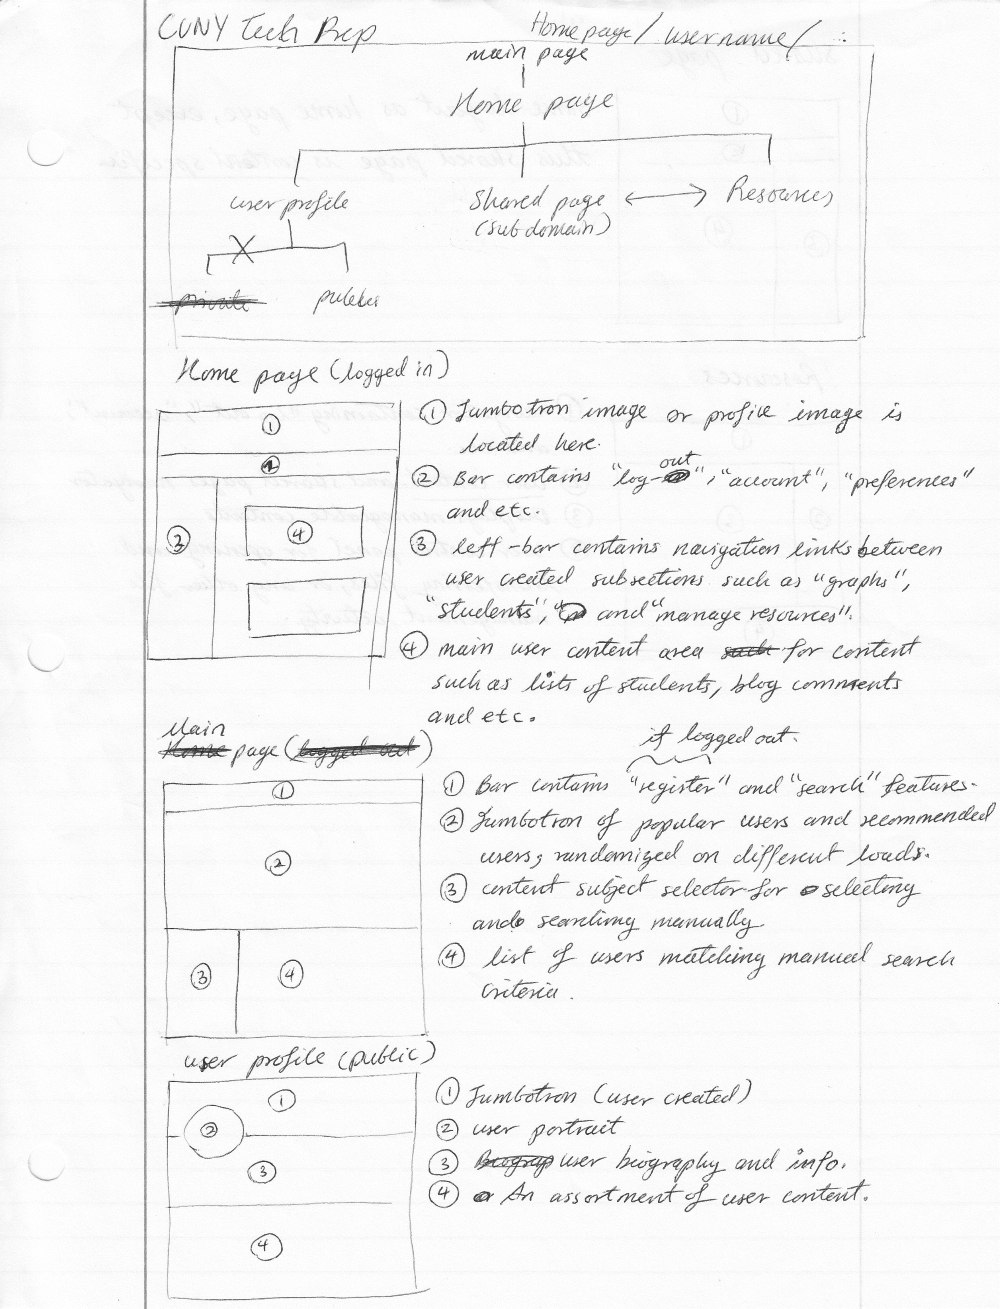 CUNY Tech Prep
Homepage/ username/
main page
Home page
user profile
Shared page
(subdomain)
Resources
X
private
public
Home page (logged in)
1
2
3
4
① Jumbotron image or profile image is
located here.
out
② Bar contains "log-", "account", "preferences"
and etc.
③ left-bar contains navigation links between
user created subsections such as "graphs",
"students", and "manage resources".
④ main user content area such for content
such as lists of students, blog comments
and etc.
Main
Home page (logged out)
if logged out.
1
2
3
4
① Bar contains "register" and "search" features.
② Jumbotron of popular users and recommended
users, randomized on different loads.
③ content subject selector for selecting
and searching manually
④ list of users matching manual search
criteria.
user profile (public)
1
2
3
4
① Jumbotron (user created)
② user portrait
③ Biograp user biography and info.
④ An assortment of user content.